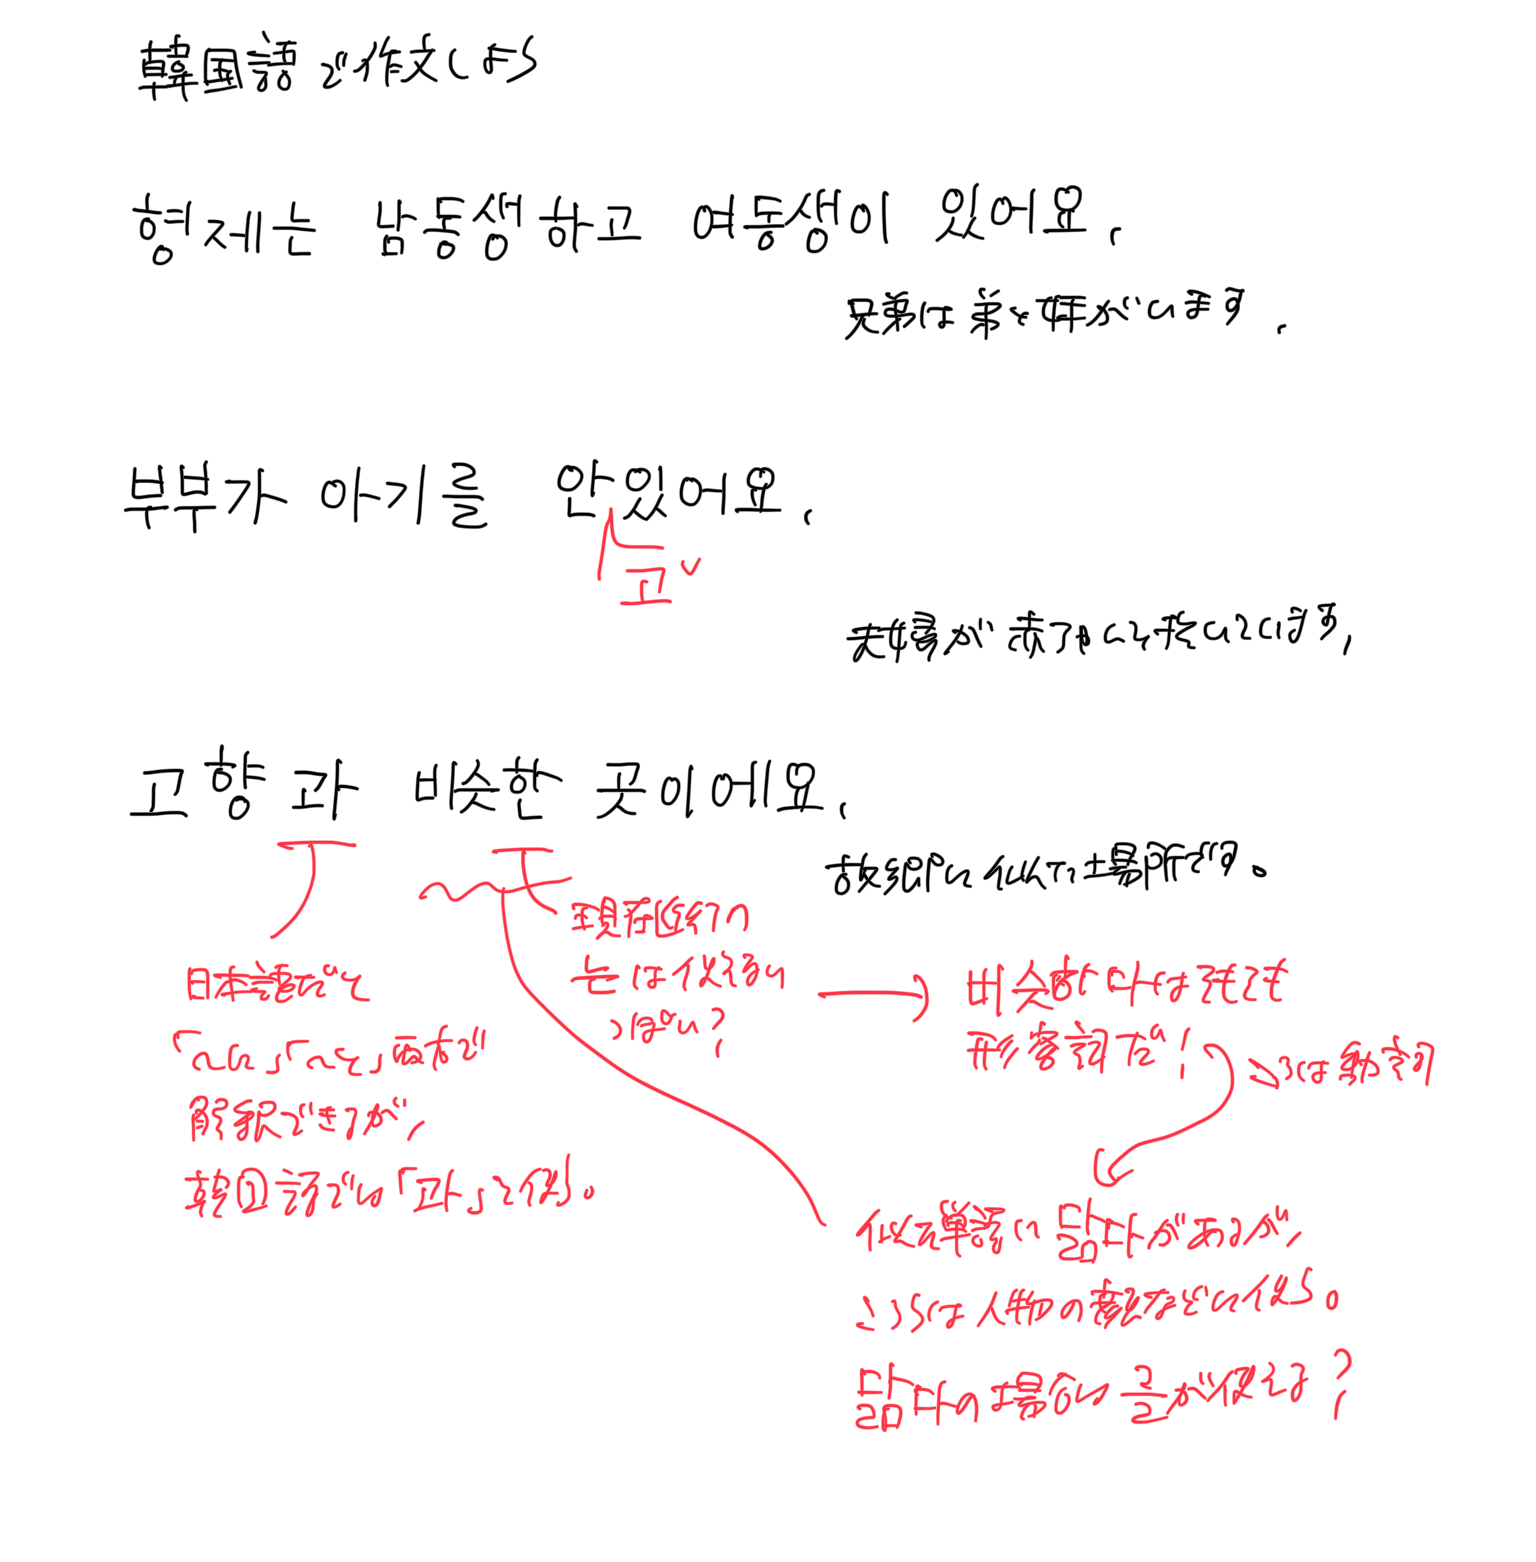 韓国語で作文しよう
형제는 남동생하고 여동생이 있어요.
兄弟は弟と妹がいます.
부부가 아기를 안있어요.
고
夫婦が赤ちゃんを抱いています,
고향과 비슷한 곳이에요.
故郷に似た場所です。
現在進行の
는は使えない
っぽい?
日本語だと
「〜に」「〜と」両方で
解釈できるが,
韓国語では「과」を使う。
비슷하다はそもそも
形容詞だ!
こっちは動詞
似た単語に닮다があるが,
こっちは人物の顔などに使う。
닮다の場合は를が使える?